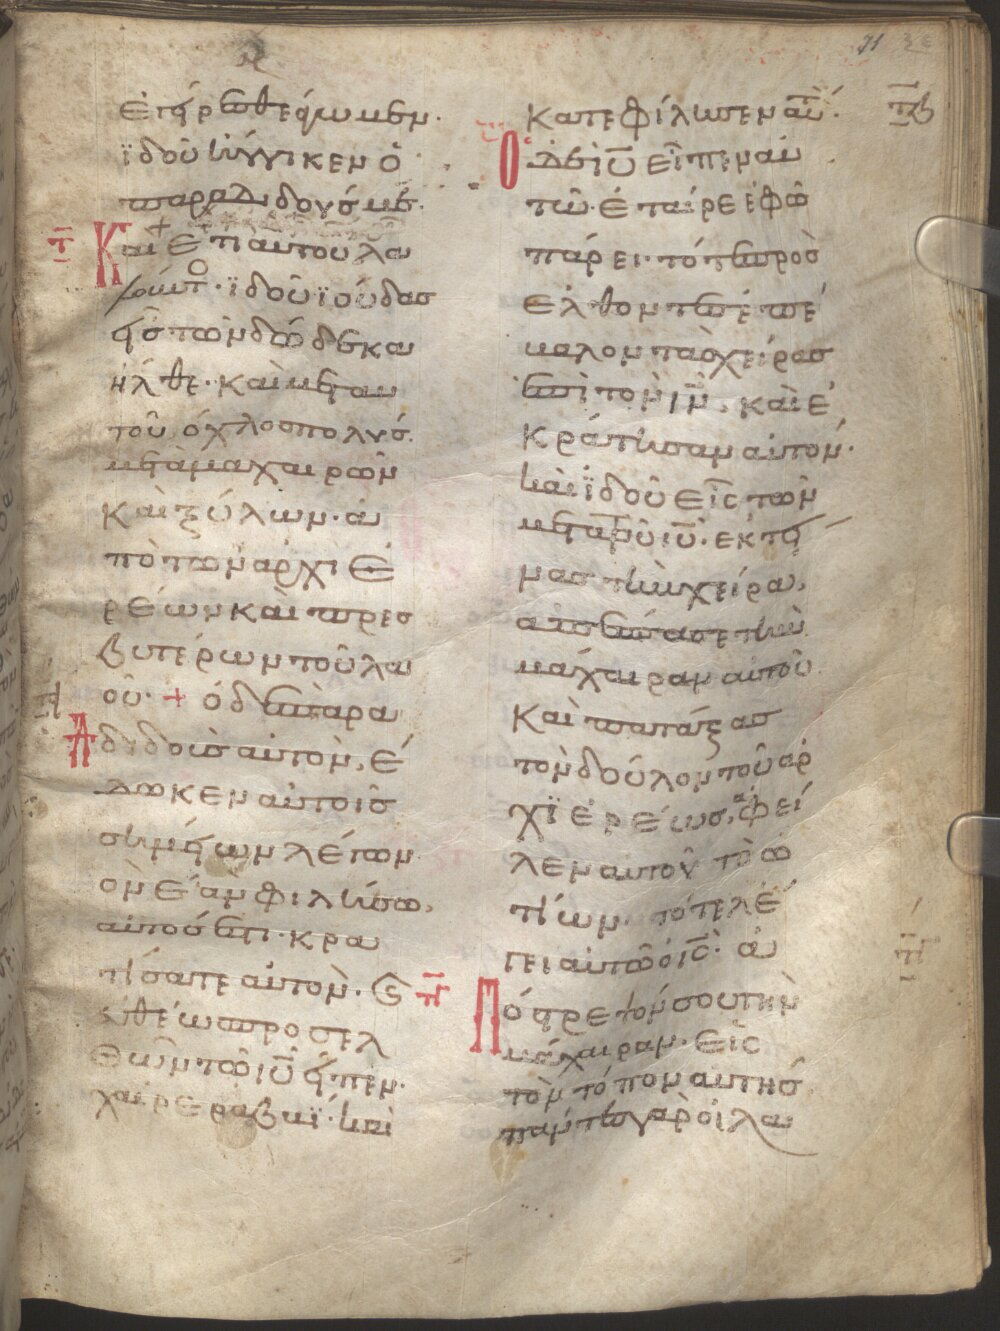 71
ἐγείρεσθε ἄγωμεν·
ϊδοὺ ἤγγικεν ὁ
παραδιδούς με·
Καὶ ἔτι αυτοῦ λα
λοῦντο· ϊδοῦ ϊούδας
εἷς τῶν δώδεκα
ἦλθε· καὶ μετ αυ
τοῦ όχλος πολύς·
μετὰ μαχαιρῶν
καὶ ξύλων· ἀ
πὸ τῶν ἀρχιε
ρέων καὶ πρεσ
βυτέρων τοῦ λα
οῦ· + ὁ δὲ παρα
Διδοὺς αυτὸν, ἔ
δωκεν αὐτοῖς
σημεῖων λέγων
ὃν ἐὰν φιλήσω,
αὐτός ἐστι· κρα
τίσατε αὐτὸν·
εὐθέως προσελ
θὼν τῶ ιῦ εἶπεν·
χαῖρε ραββί· καὶ
Κατεφίλισεν αυ·
πβ
Ὁ δὲ ις εἶπεν αυ
τῶ· Ἑταῖρε ἐφ ὧ
πάρει· τότε προσ
ελθοντες ἐπέ
βαλον τὰς χείρας
ἐπὶ τὸν ιν, καὶ ἐ
κράτησαν αὐτόν·
καὶ ϊδοὺ εἷς τῶν
μετὰ τοῦ ιυ· εκτεί
νας τὴν χείρα,
απέσπασε τὴν
μάχαιραν αυτοῦ
καὶ πατάξας
τὸν δούλον τοῦ αρ
χϊερέως, ἀφεί
λεν αυτοῦ τὸ ὠ
τίων· τότε λέ
γει αυτῶ ὁ ις· ἀ
Πόστρεψόν σου τὴν
μάχαιραν· εἰς
τὸν τόπον αυτῆς
πάντες γὰρ οἱ λα